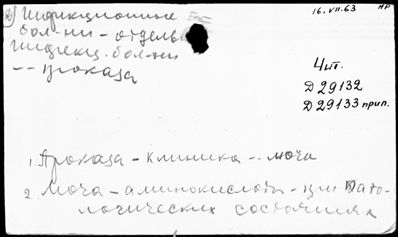 16.VII.63
НР
2) Инфекционные
бол-ни – отдельн
инфекц. бол-ни
-- проказа
Чит.
Д 29132
Д 29133 прип.
1. Проказа – клиника -- моча
2 Моча – аминокислоты – при пато-
логических состояниях